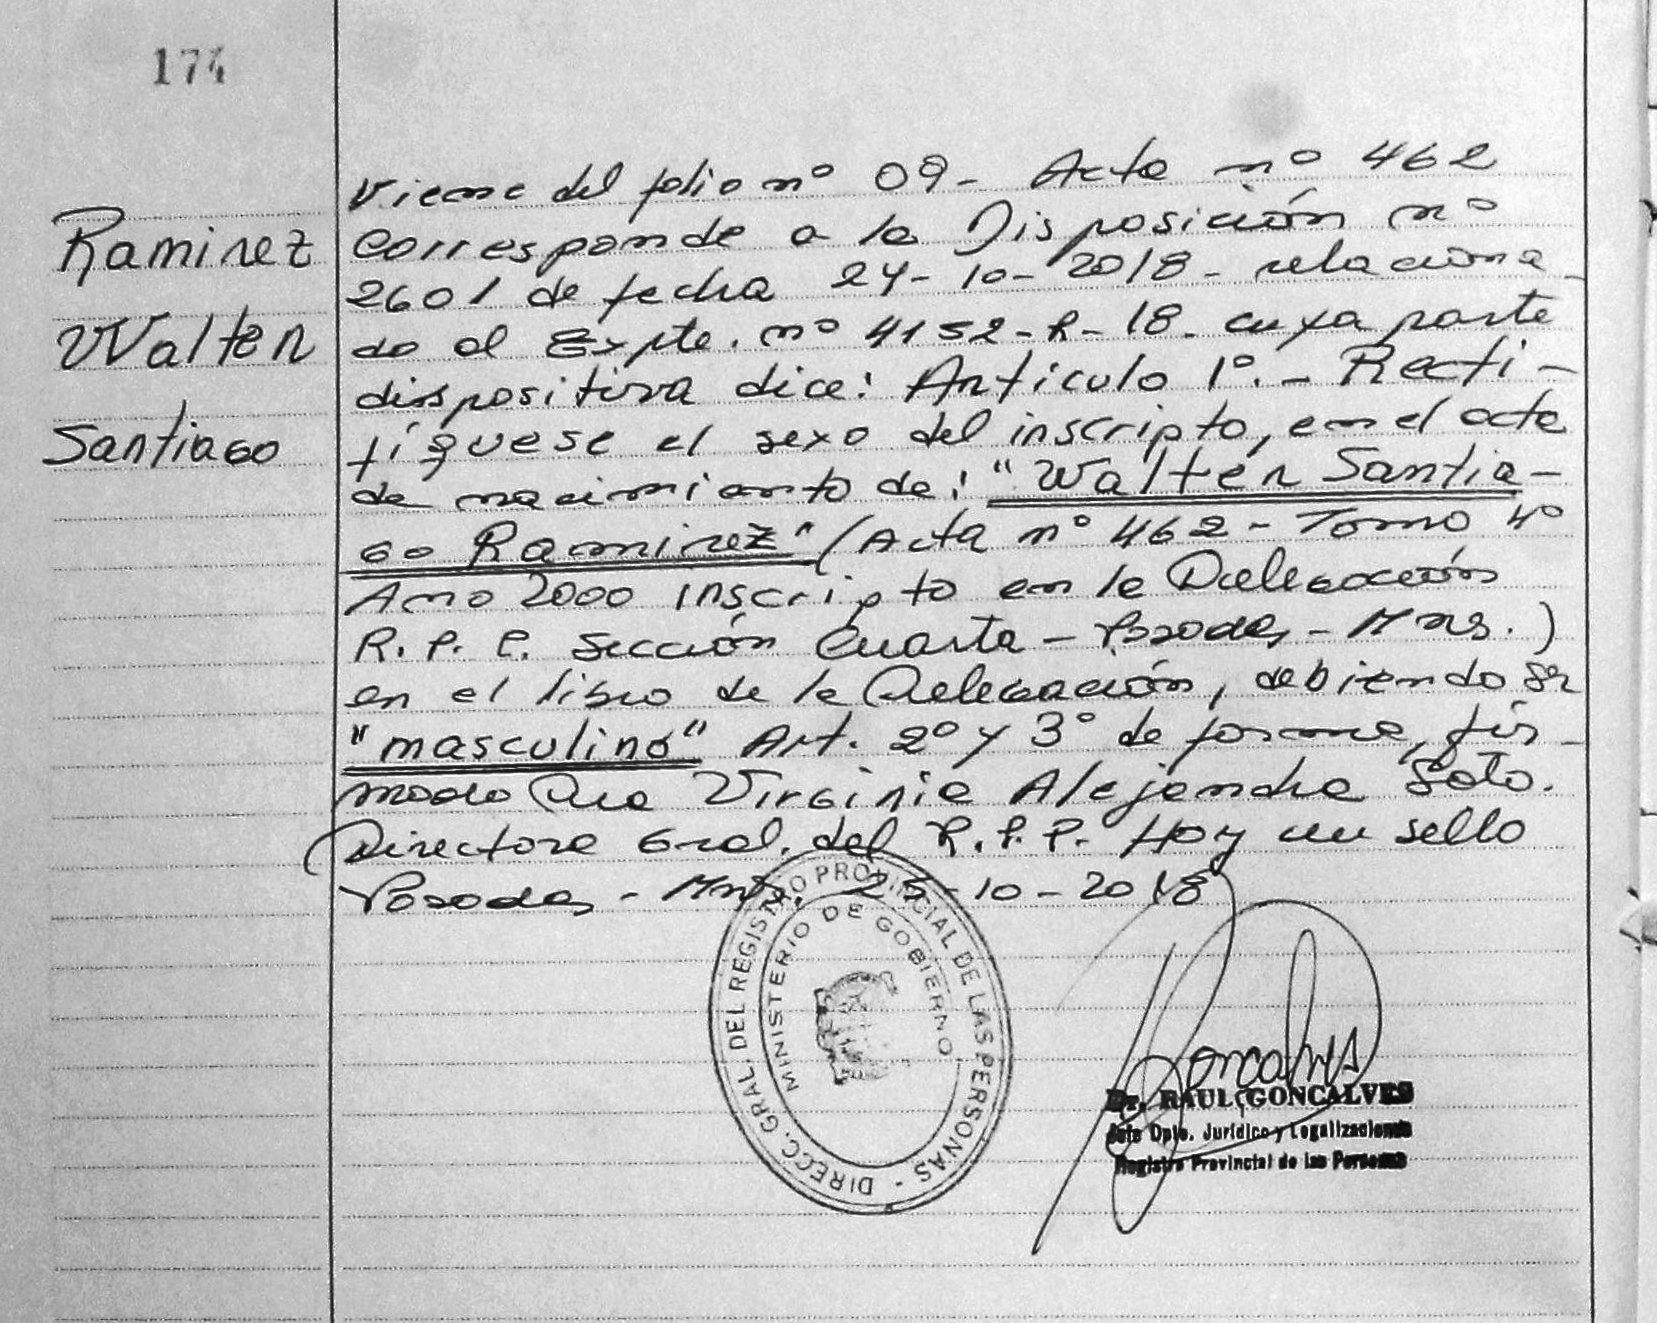 174
Ramirez
Walter
Santiago
Viene del folio nº 09- Acta nº 462
corresponde a la Disposición nº
2601 de fecha 24-10-2018- relaciona-
do al Expte. nº 4152-R-18- cuya parte
dispositiva dice: Artículo 1º.- Recti-
fíquese el sexo del inscripto, en el acta
de nacimiento de: "Walter Santia-
go Ramirez" (Acta nº 462- Tomo 4º
Año 2000 inscripto en la Delegación
R.P.P. Sección Cuarta - Posadas - Mnes.)
en el libro de la Delegación, debiendo ser
"masculino" Art. 2º y 3º de forma, fir-
mado Dra Virginia Alejandra Soto.
Directora Gral. del R.P.P. Hay un sello
Posadas - Mnes. 25-10-2018
DIRECC. GRAL. DEL REGISTRO PROVINCIAL DE LAS PERSONAS -
MINISTERIO DE GOBIERNO
Goncalves
Dr. RAUL GONCALVES
Jefe Dpto. Jurídico y Legalizaciones
Registro Provincial de las Personas